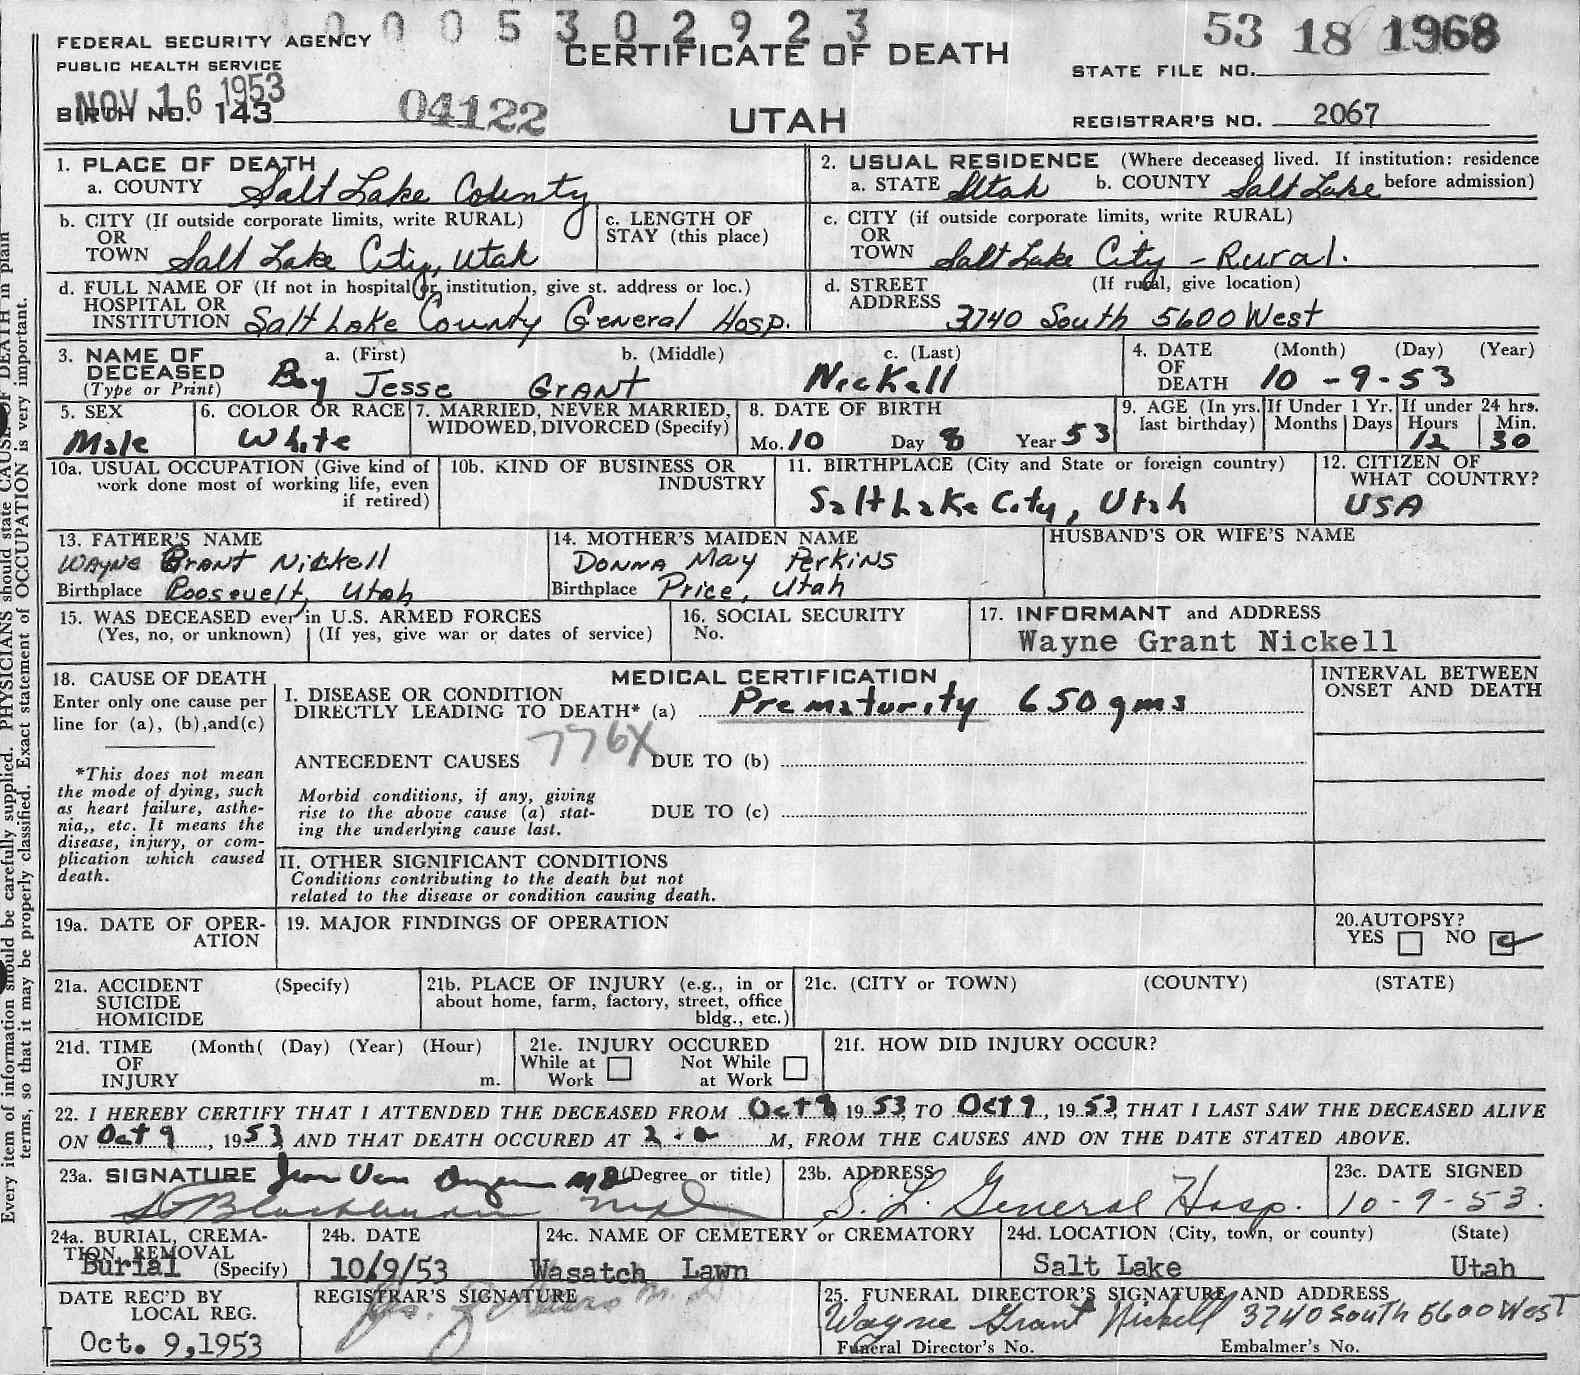 0005302923
53 18 1968
FEDERAL SECURITY AGENCY
PUBLIC HEALTH SERVICE
CERTIFICATE OF DEATH
STATE FILE NO.
NOV 16 1953
BIRTH NO. 143
04122
UTAH
REGISTRAR'S NO. 2067
1. PLACE OF DEATH
a. COUNTY Salt Lake County
2. USUAL RESIDENCE (Where deceased lived. If institution: residence before admission)
a. STATE Utah b. COUNTY Salt Lake
b. CITY (If outside corporate limits, write RURAL)
OR
TOWN Salt Lake City, Utah
c. LENGTH OF
STAY (this place)
c. CITY (if outside corporate limits, write RURAL)
OR
TOWN Salt Lake City - Rural.
d. FULL NAME OF (If not in hospital or institution, give st. address or loc.)
HOSPITAL OR
INSTITUTION Salt Lake County General Hosp.
d. STREET (If rural, give location)
ADDRESS 3740 South 5600 West
3. NAME OF
DECEASED
(Type or Print)
a. (First) b. (Middle) c. (Last)
Boy Jesse GRANT Nickell
4. DATE (Month) (Day) (Year)
OF
DEATH 10-9-53
5. SEX
Male
6. COLOR OR RACE
White
7. MARRIED, NEVER MARRIED,
WIDOWED, DIVORCED (Specify)
8. DATE OF BIRTH
Mo. 10 Day 8 Year 53
9. AGE (In yrs. last birthday)
If Under 1 Yr.
Months Days
If under 24 hrs.
Hours Min.
12 30
10a. USUAL OCCUPATION (Give kind of
work done most of working life, even
if retired)
10b. KIND OF BUSINESS OR
INDUSTRY
11. BIRTHPLACE (City and State or foreign country)
Salt Lake City, Utah
12. CITIZEN OF
WHAT COUNTRY?
USA
13. FATHER'S NAME
Wayne Grant Nickell
Birthplace Roosevelt, Utah
14. MOTHER'S MAIDEN NAME
Donna May Perkins
Birthplace Price, Utah
HUSBAND'S OR WIFE'S NAME
15. WAS DECEASED ever in U.S. ARMED FORCES
(Yes, no, or unknown) (If yes, give war or dates of service)
16. SOCIAL SECURITY
No.
17. INFORMANT and ADDRESS
Wayne Grant Nickell
18. CAUSE OF DEATH
Enter only one cause per
line for (a), (b), and (c)
*This does not mean
the mode of dying, such
as heart failure, asthe-
nia,, etc. It means the
disease, injury, or com-
plication which caused
death.
MEDICAL CERTIFICATION
I. DISEASE OR CONDITION
DIRECTLY LEADING TO DEATH* (a) Prematurity 650 gms
776X
ANTECEDENT CAUSES DUE TO (b)
Morbid conditions, if any, giving
rise to the above cause (a) stat-
ing the underlying cause last.
DUE TO (c)
II. OTHER SIGNIFICANT CONDITIONS
Conditions contributing to the death but not
related to the disease or condition causing death.
INTERVAL BETWEEN
ONSET AND DEATH
19a. DATE OF OPER-
ATION
19. MAJOR FINDINGS OF OPERATION
20. AUTOPSY?
YES NO
21a. ACCIDENT (Specify)
SUICIDE
HOMICIDE
21b. PLACE OF INJURY (e.g., in or
about home, farm, factory, street, office
bldg., etc.)
21c. (CITY or TOWN) (COUNTY) (STATE)
21d. TIME (Month( (Day) (Year) (Hour)
OF
INJURY m.
21e. INJURY OCCURED
While at Work
Not While at Work
21f. HOW DID INJURY OCCUR?
22. I HEREBY CERTIFY THAT I ATTENDED THE DECEASED FROM Oct 8 1953, TO Oct 9, 1953, THAT I LAST SAW THE DECEASED ALIVE
ON Oct 9, 1953 AND THAT DEATH OCCURED AT 2 M, FROM THE CAUSES AND ON THE DATE STATED ABOVE.
23a. SIGNATURE MD (Degree or title)
Blackburn
23b. ADDRESS
S. L. General Hosp.
23c. DATE SIGNED
10-9-53.
24a. BURIAL, CREMA-
TION, REMOVAL
Burial (Specify)
24b. DATE
10/9/53
24c. NAME OF CEMETERY or CREMATORY
Wasatch Lawn
24d. LOCATION (City, town, or county) (State)
Salt Lake Utah
DATE REC'D BY
LOCAL REG.
Oct. 9,1953
REGISTRAR'S SIGNATURE
25. FUNERAL DIRECTOR'S SIGNATURE AND ADDRESS
Wayne Grant Nickell 3740 South 5600 West
Funeral Director's No. Embalmer's No.
Every item of information should be carefully supplied. PHYSICIANS should state CAUSE OF DEATH in plain
terms, so that it may be properly classified. Exact statement of OCCUPATION is very important.